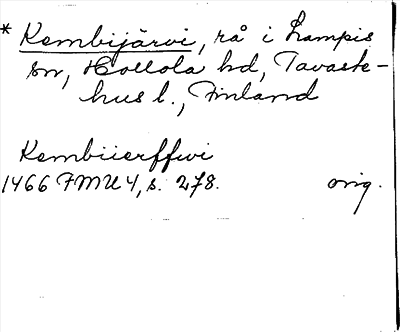 * Kembijärvi, rå i Lampis
sn, Hollola hd, Tavaste-
hus l., Finland
Kembiierffwi
1466 FMU 4, s. 278. orig.